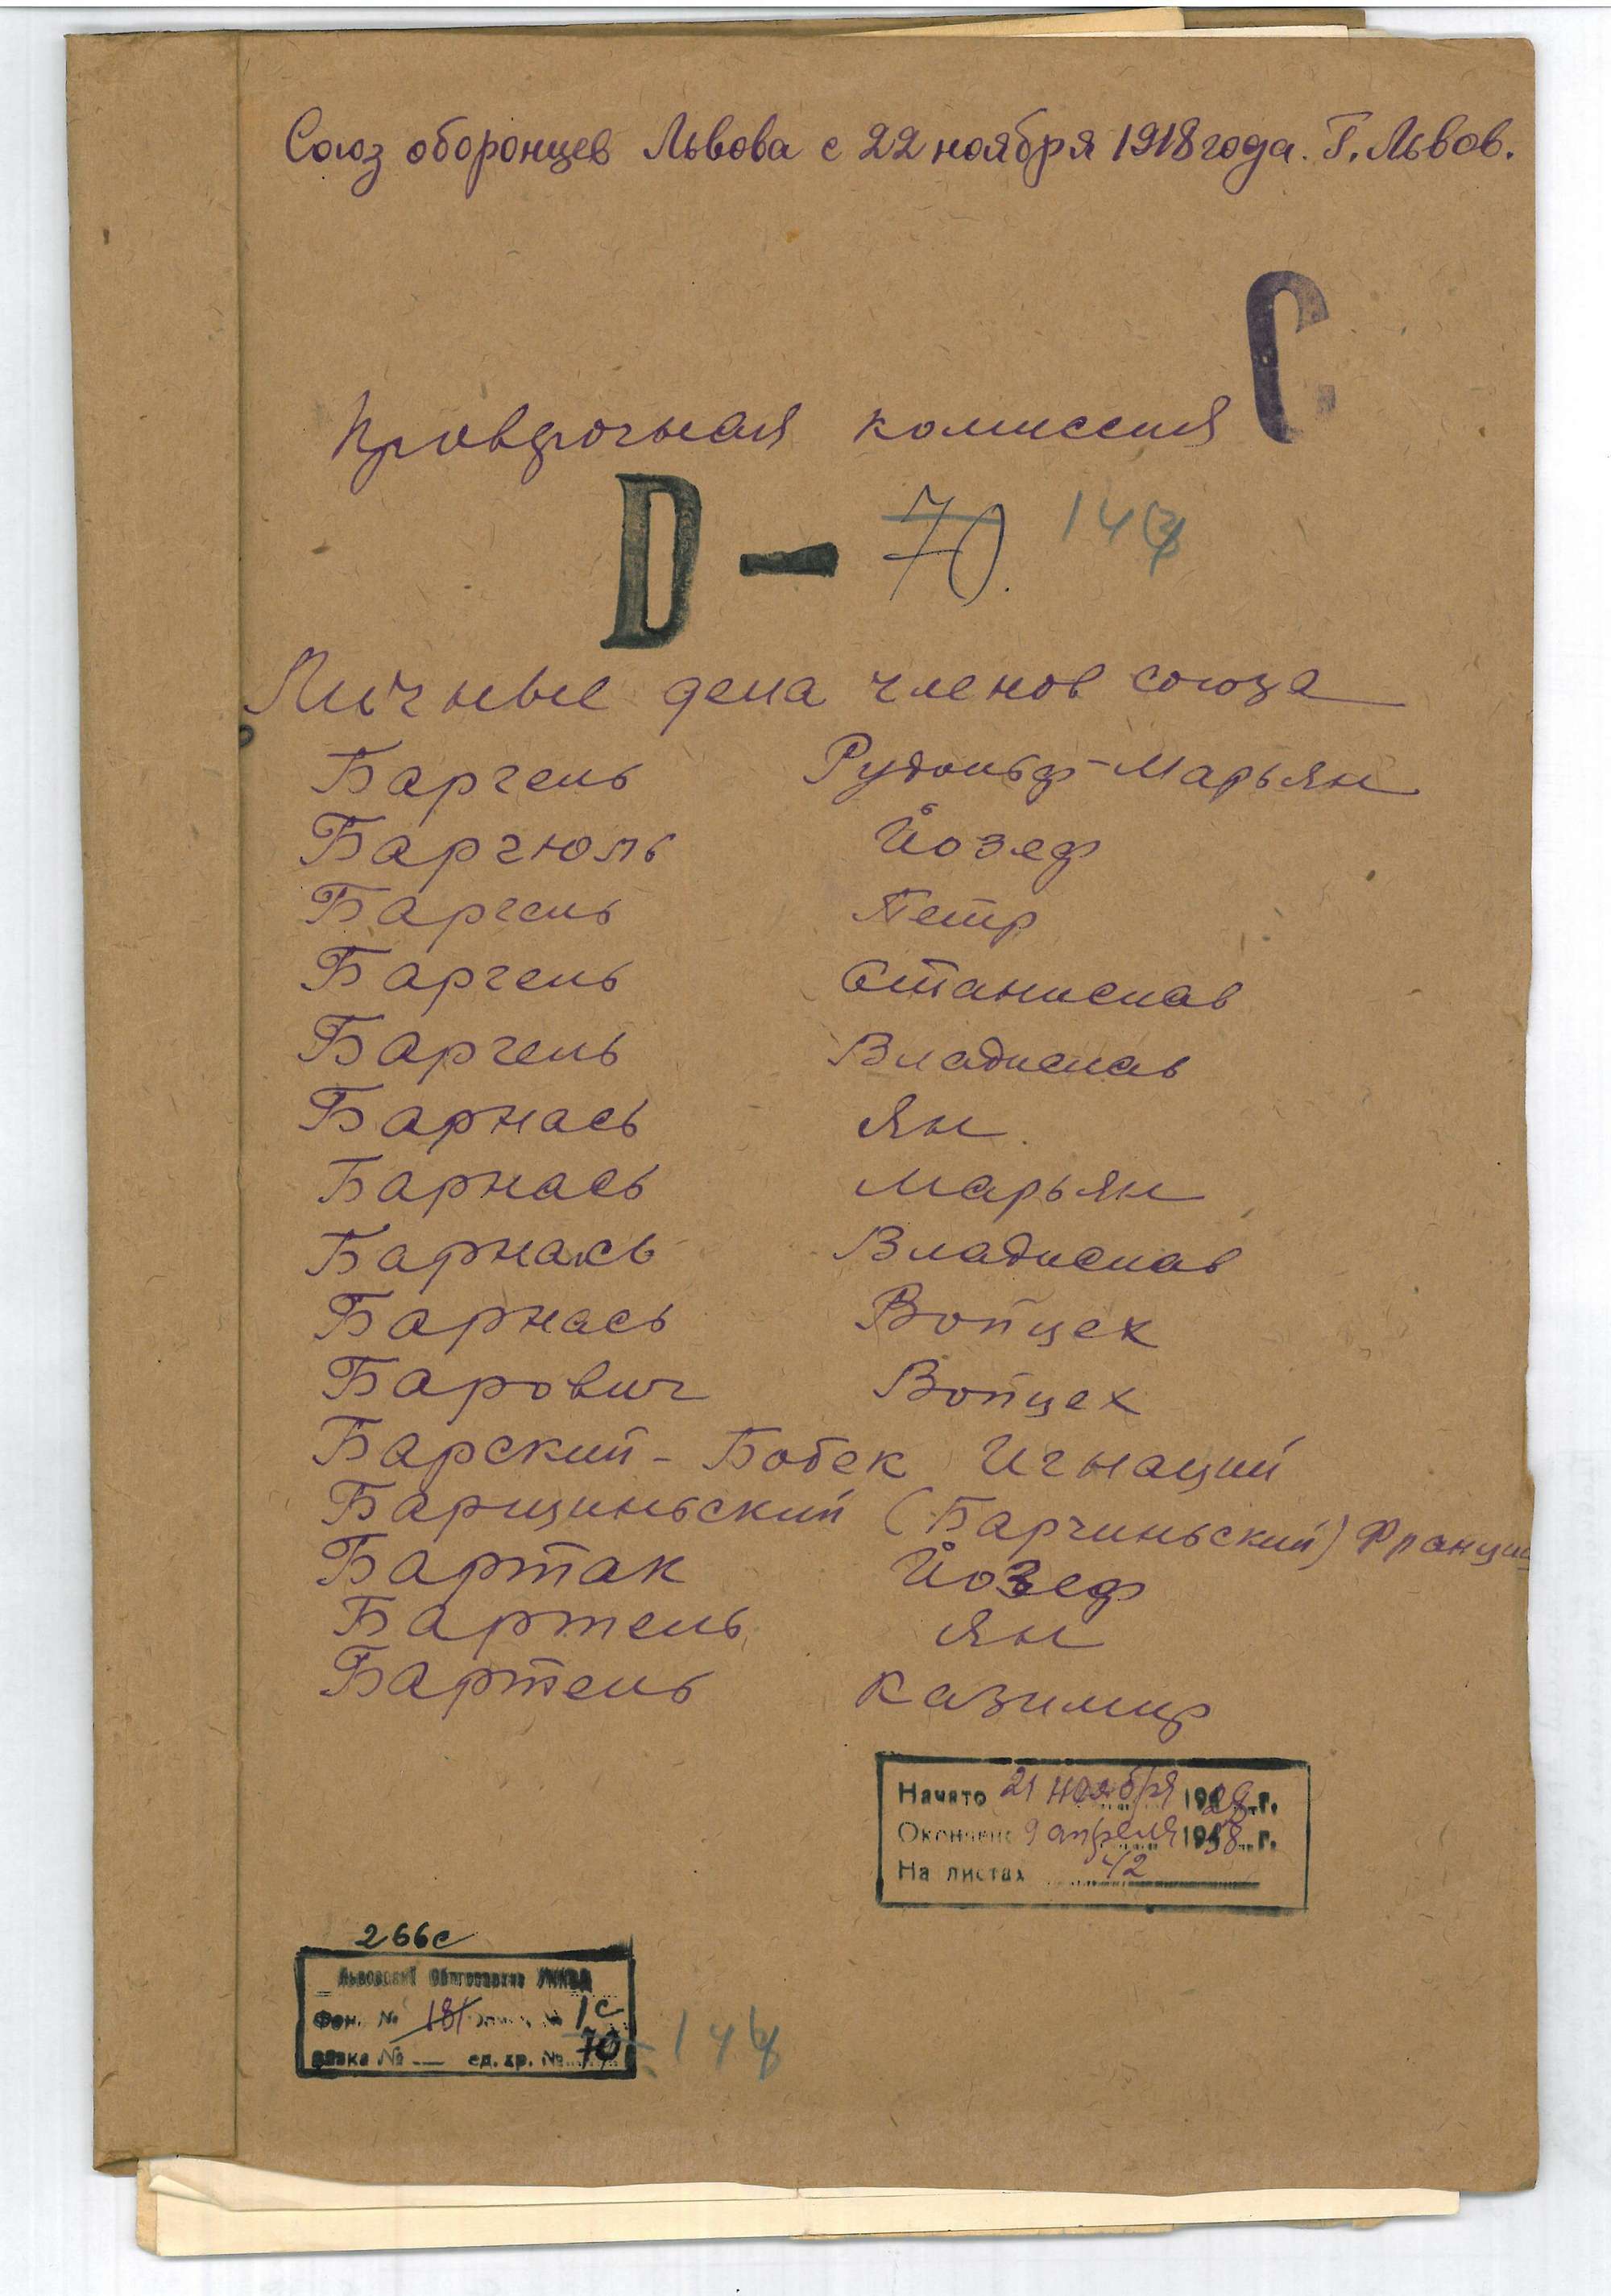 Союз оборонцев Львова с 22 ноября 1918 года. Г. Львов.
С
Проверочная комиссия
D - 70. 144
Личные дела членов союза
Баргель Рудольф-Марьян
Баргюль Йозеф
Баргель Петр
Баргель Станислав
Баргель Владислав
Барнась Ян
Барнась Марьян
Барнась Владислав
Барнась Войцех
Барович Войцех
Барский-Бобек Игнаций
Барщиньский (Барчиньский) Франци
Бартак Йозеф
Бартель Ян
Бартель Казимир
Начато 21 ноября 1928 г.
Окончено 9 апреля 1938 г.
На листах 42
266с
Львовский Облгосархив УНКВД
Фон. № 181 Опись № 1с
вязка № — ед. хр. № 70 144